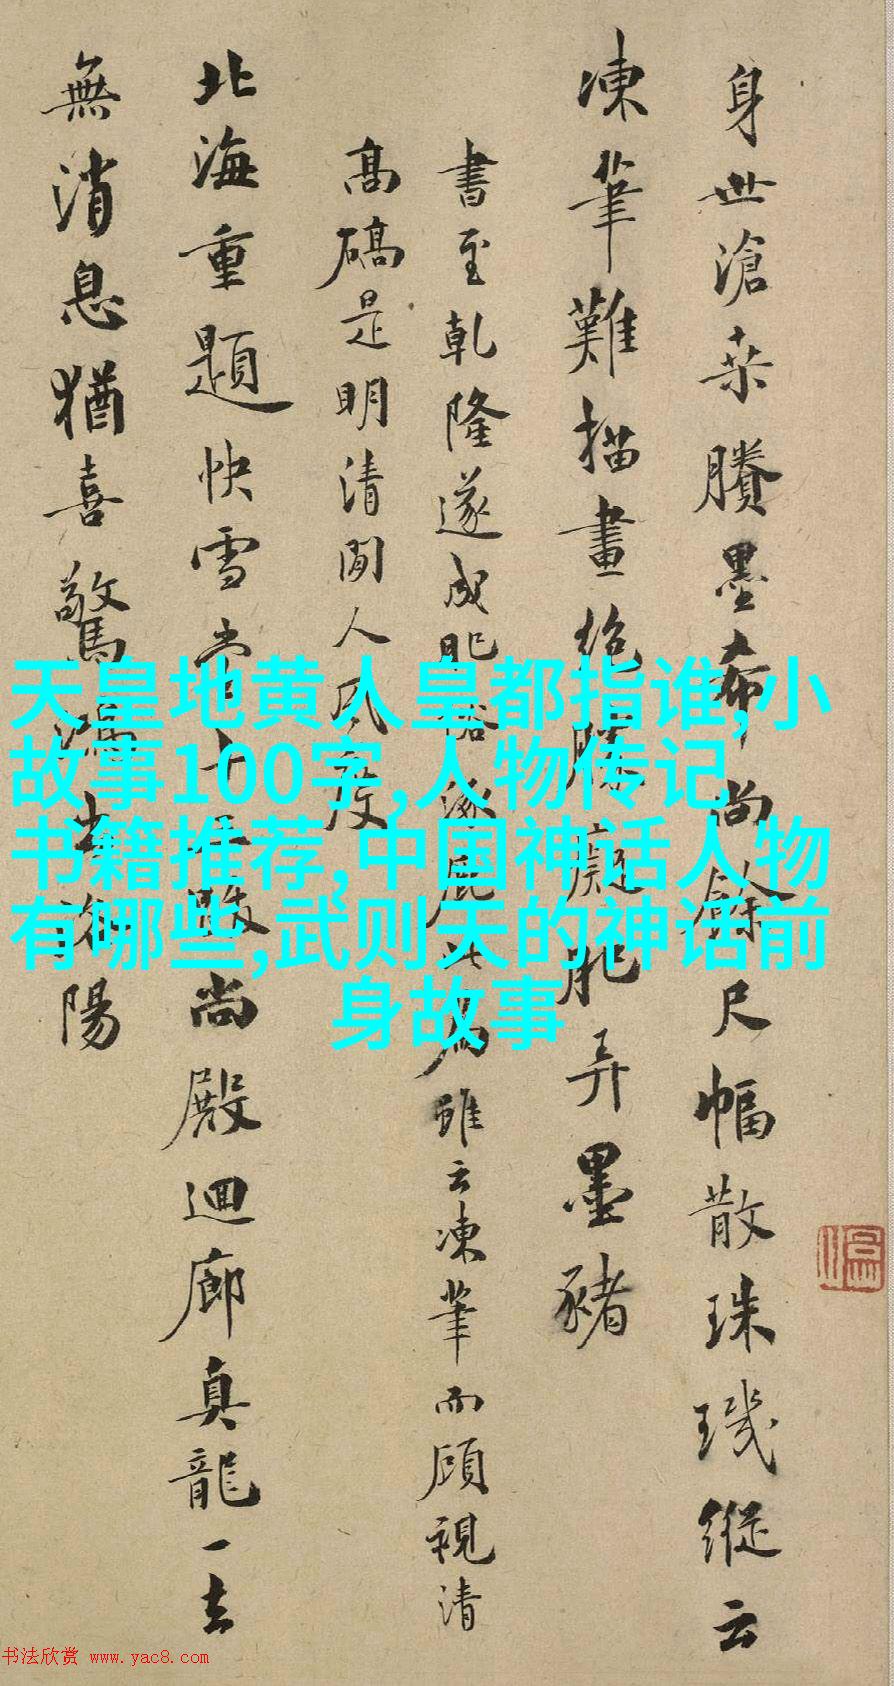 身世滄桑賸墨希尚餘尺幅散珠璣縱云
凍筆難描畫絶勝癡肥弄墨豬
書至乾隆遂成肥俗此雖云凍筆而顧視清
高碻是明清間人風度
北海重題快雪堂尚殿迴廊真龍一去
無消息猶喜驚鴻洛陽
天皇地黄人皇都指谁,小
故事100字,人物传记
书籍推荐,中国神话人物
有哪些,武则天的神话前
身故事
书法欣赏 www.yac8.com